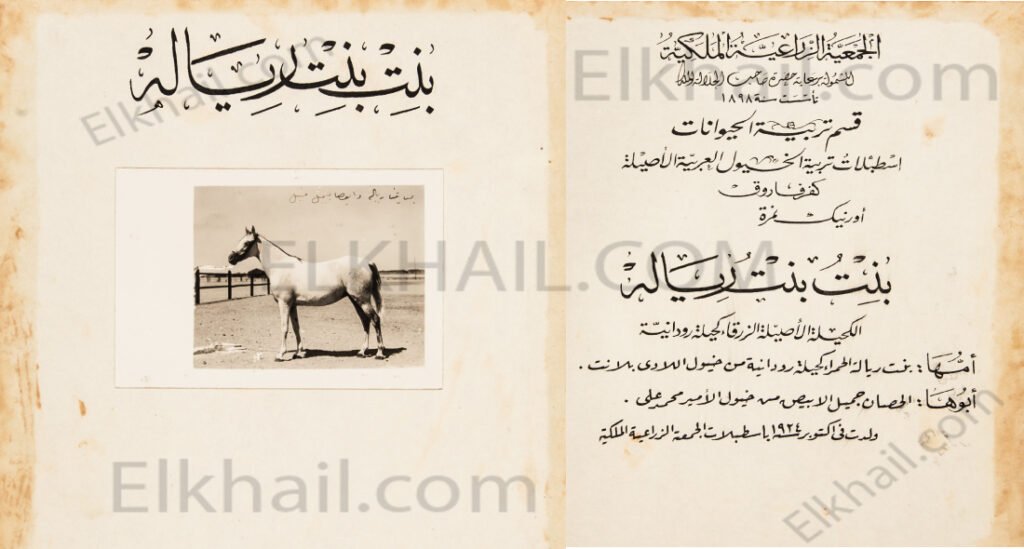 بنت بنت رياله
الجمعية الزراعية الملكية
المشمولة برعاية حضرة صاحب الجلالة الملك
تأسست سنة ١٨٩٨
قسم تربية الحيوانات
اسطبلات تربية الخيول العربية الأصيلة
كفر فاروق
أورنيك نمرة
بنت بنت رياله
الكحيلة الأصيلة الزرقاء كحيلة رودانية
أمّها: بنت ريالة الحمراء كحيلة رودانية من خيول اللادى بلانت .
أبوها: الحصان جميل الابيض من خيول الأمير محمد على .
ولدت فى اكتوبر سنة ١٩٢٤ باسطبلات الجمعية الزراعية الملكية
Elkhail.com
Elkhail.com
ELKHAIL.COM
Elkhail.com
Elkhail.com